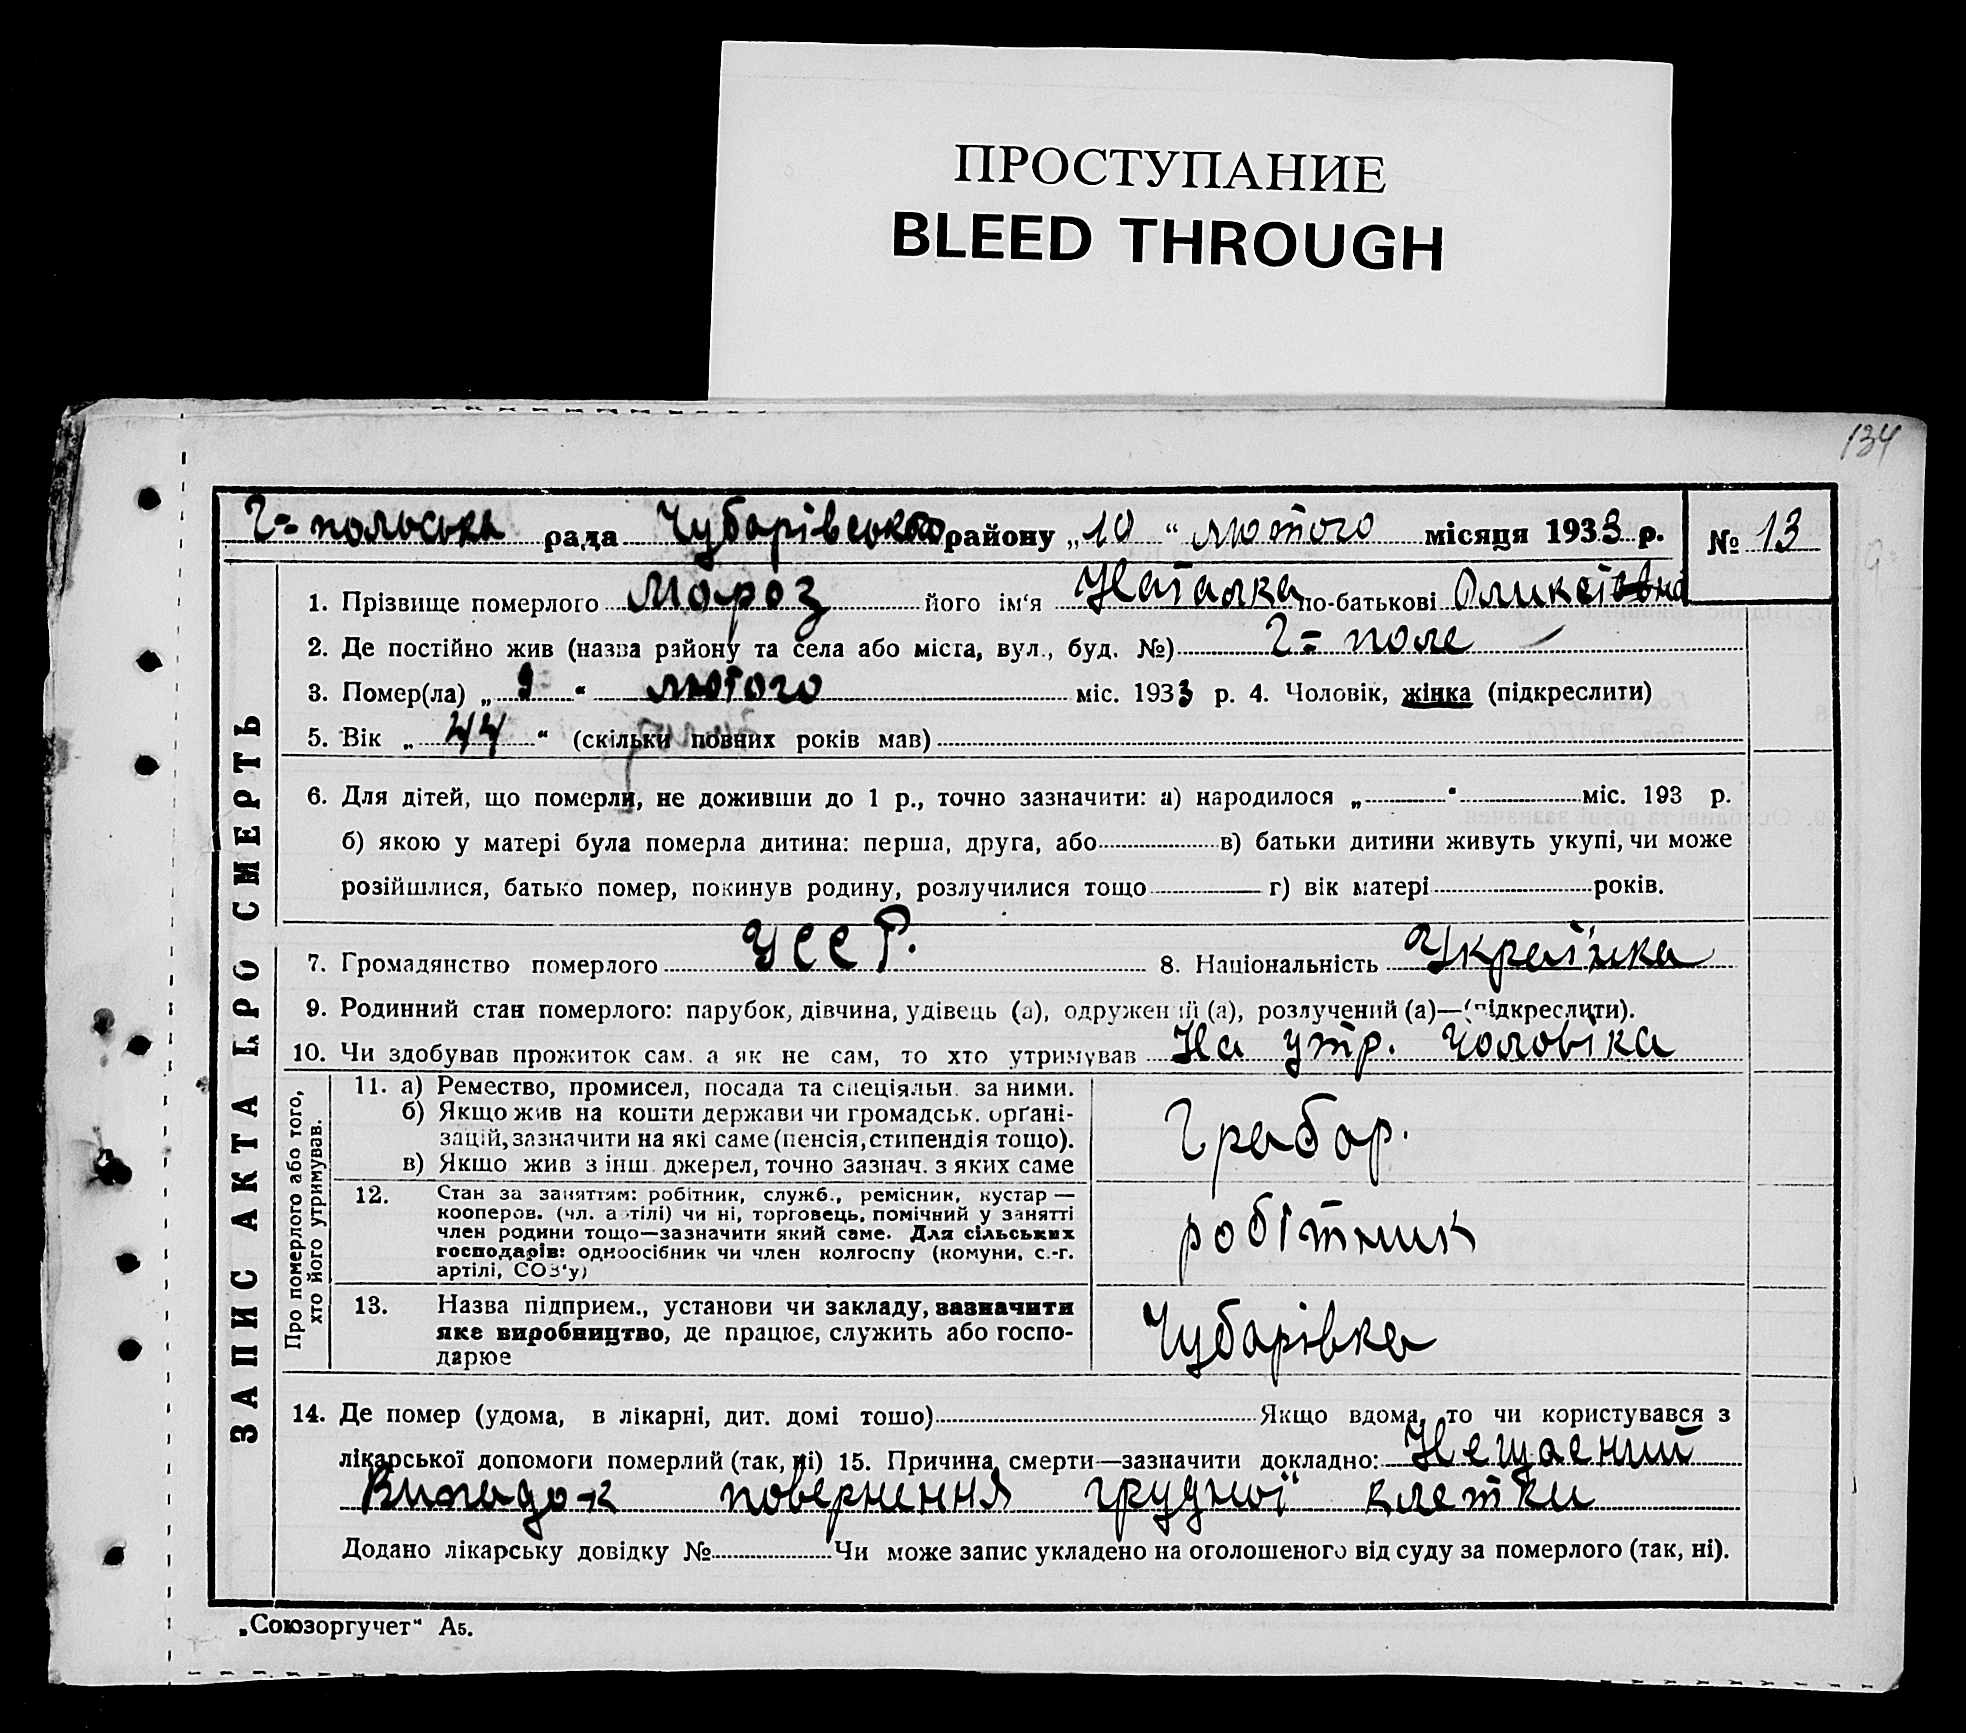 ПРОСТУПАНИЕ
BLEED THROUGH
134
Г=польська рада Чубарівського району „10“ лютого місяця 1933 р. № 13
ЗАПИС АКТА ПРО СМЕРТЬ
1. Прізвище померлого Мороз його ім‘я Наталка по-батькові
2. Де постійно жив (назва району та села або міста, вул., буд. №) Г= поле
3. Помер(ла) „9“ лютого міс. 1933 р. 4. Чоловік, жінка (підкреслити)
5. Вік „44“ (скільки повних років мав)
6. Для дітей, що померли, не доживши до 1 р., точно зазначити: а) народилося „ “ міс. 193 р.
б) якою у матері була померла дитина: перша, друга, або в) батьки дитини живуть укупі, чи може
розійшлися, батько помер, покинув родину, розлучилися тощо г) вік матері років.
7. Громадянство померлого УССР. 8. Національність Украї́нка
9. Родинний стан померлого: парубок, дівчина, удівець (а), одружений (а), розлучений (а)—(підкреслити).
10. Чи здобував прожиток сам, а як не сам, то хто утримував На утр. Чоловіка
Про померлого або того,
хто його утримував.
11. а) Ремество, промисел, посада та спеціяльн. за ними.
б) Якщо жив на кошти держави чи громадськ. орґані-
зацій, зазначити на які саме (пенсія, стипендія тощо).
в) Якщо жив з інш. джерел, точно зазнач. з яких саме
Грабар.
12. Стан за заняттям: робітник, служб., ремісник, кустар —
кооперов. (чл. артілі) чи ні, торговець, помічний у занятті
член родини тощо—зазначити який саме. Для сільських
господарів: одноосібник чи член колгоспу (комуни, с.-г.
артілі, СОЗ‘у)
робітник
13. Назва підприєм., установи чи закладу, зазначити
яке виробництво, де працює, служить або госпо-
дарює
Чубарівка
14. Де помер (удома, в лікарні, дит. домі тощо) Якщо вдома, то чи користувався з
лікарської допомоги померлий (так, ні) 15. Причина смерти—зазначити докладно: Нещасний
Випадок повернення грудної клетки
Додано лікарську довідку № Чи може запис укладено на оголошеного від суду за померлого (так, ні).
„Союзоргучет“ А5.